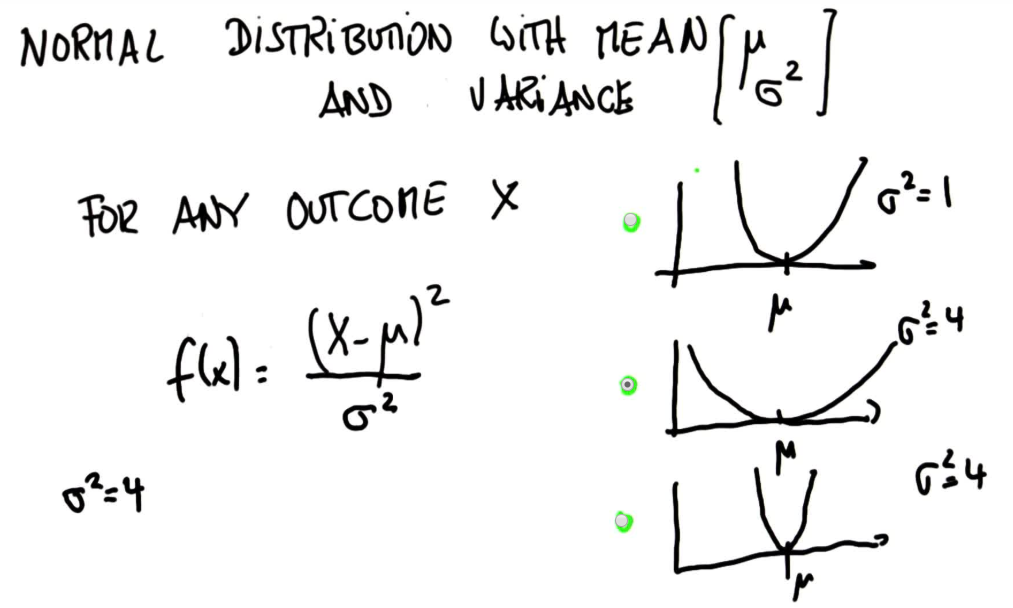 NORMAL DISTRIBUTION WITH MEAN [μ
AND VARIANCE σ²]
FOR ANY OUTCOME X
σ²=1
μ
f(x) = (X-μ)² / σ²
σ²=4
μ
σ²=4
σ²=4
μ